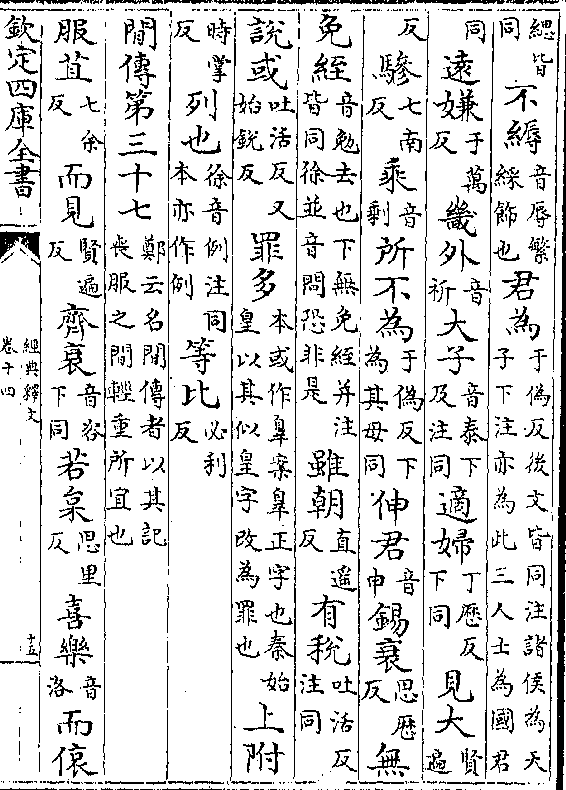 緦皆同不縟音辱繁綵飾也君為于偽反後文皆同注諸侯為天子下注亦為此三人士為國君
同遠嫌于萬反畿外音祈大子音泰下及注同適婦丁歷反下同見大賢遍
反驂七南反乘音剩所不為于偽反下為其母同伸君音申錫衰思歷反無
免絰音勉去也下無免絰并注皆同徐並音問恐非是雖朝直遥反有稅吐活反注同
說或吐活反又始銳反罪多本或作辠案辠正字也秦始皇以其似皇字改為罪也上附
時掌反列也徐音例注同本亦作例等比必利反
間傳第三十七鄭云名間傳者以其記喪服之間輕重所宜也
服苴七余反而見賢遍反齊衰音咨下同若枲思里反喜樂音洛而偯
欽定四庫全書
經典釋文
卷十四
十五